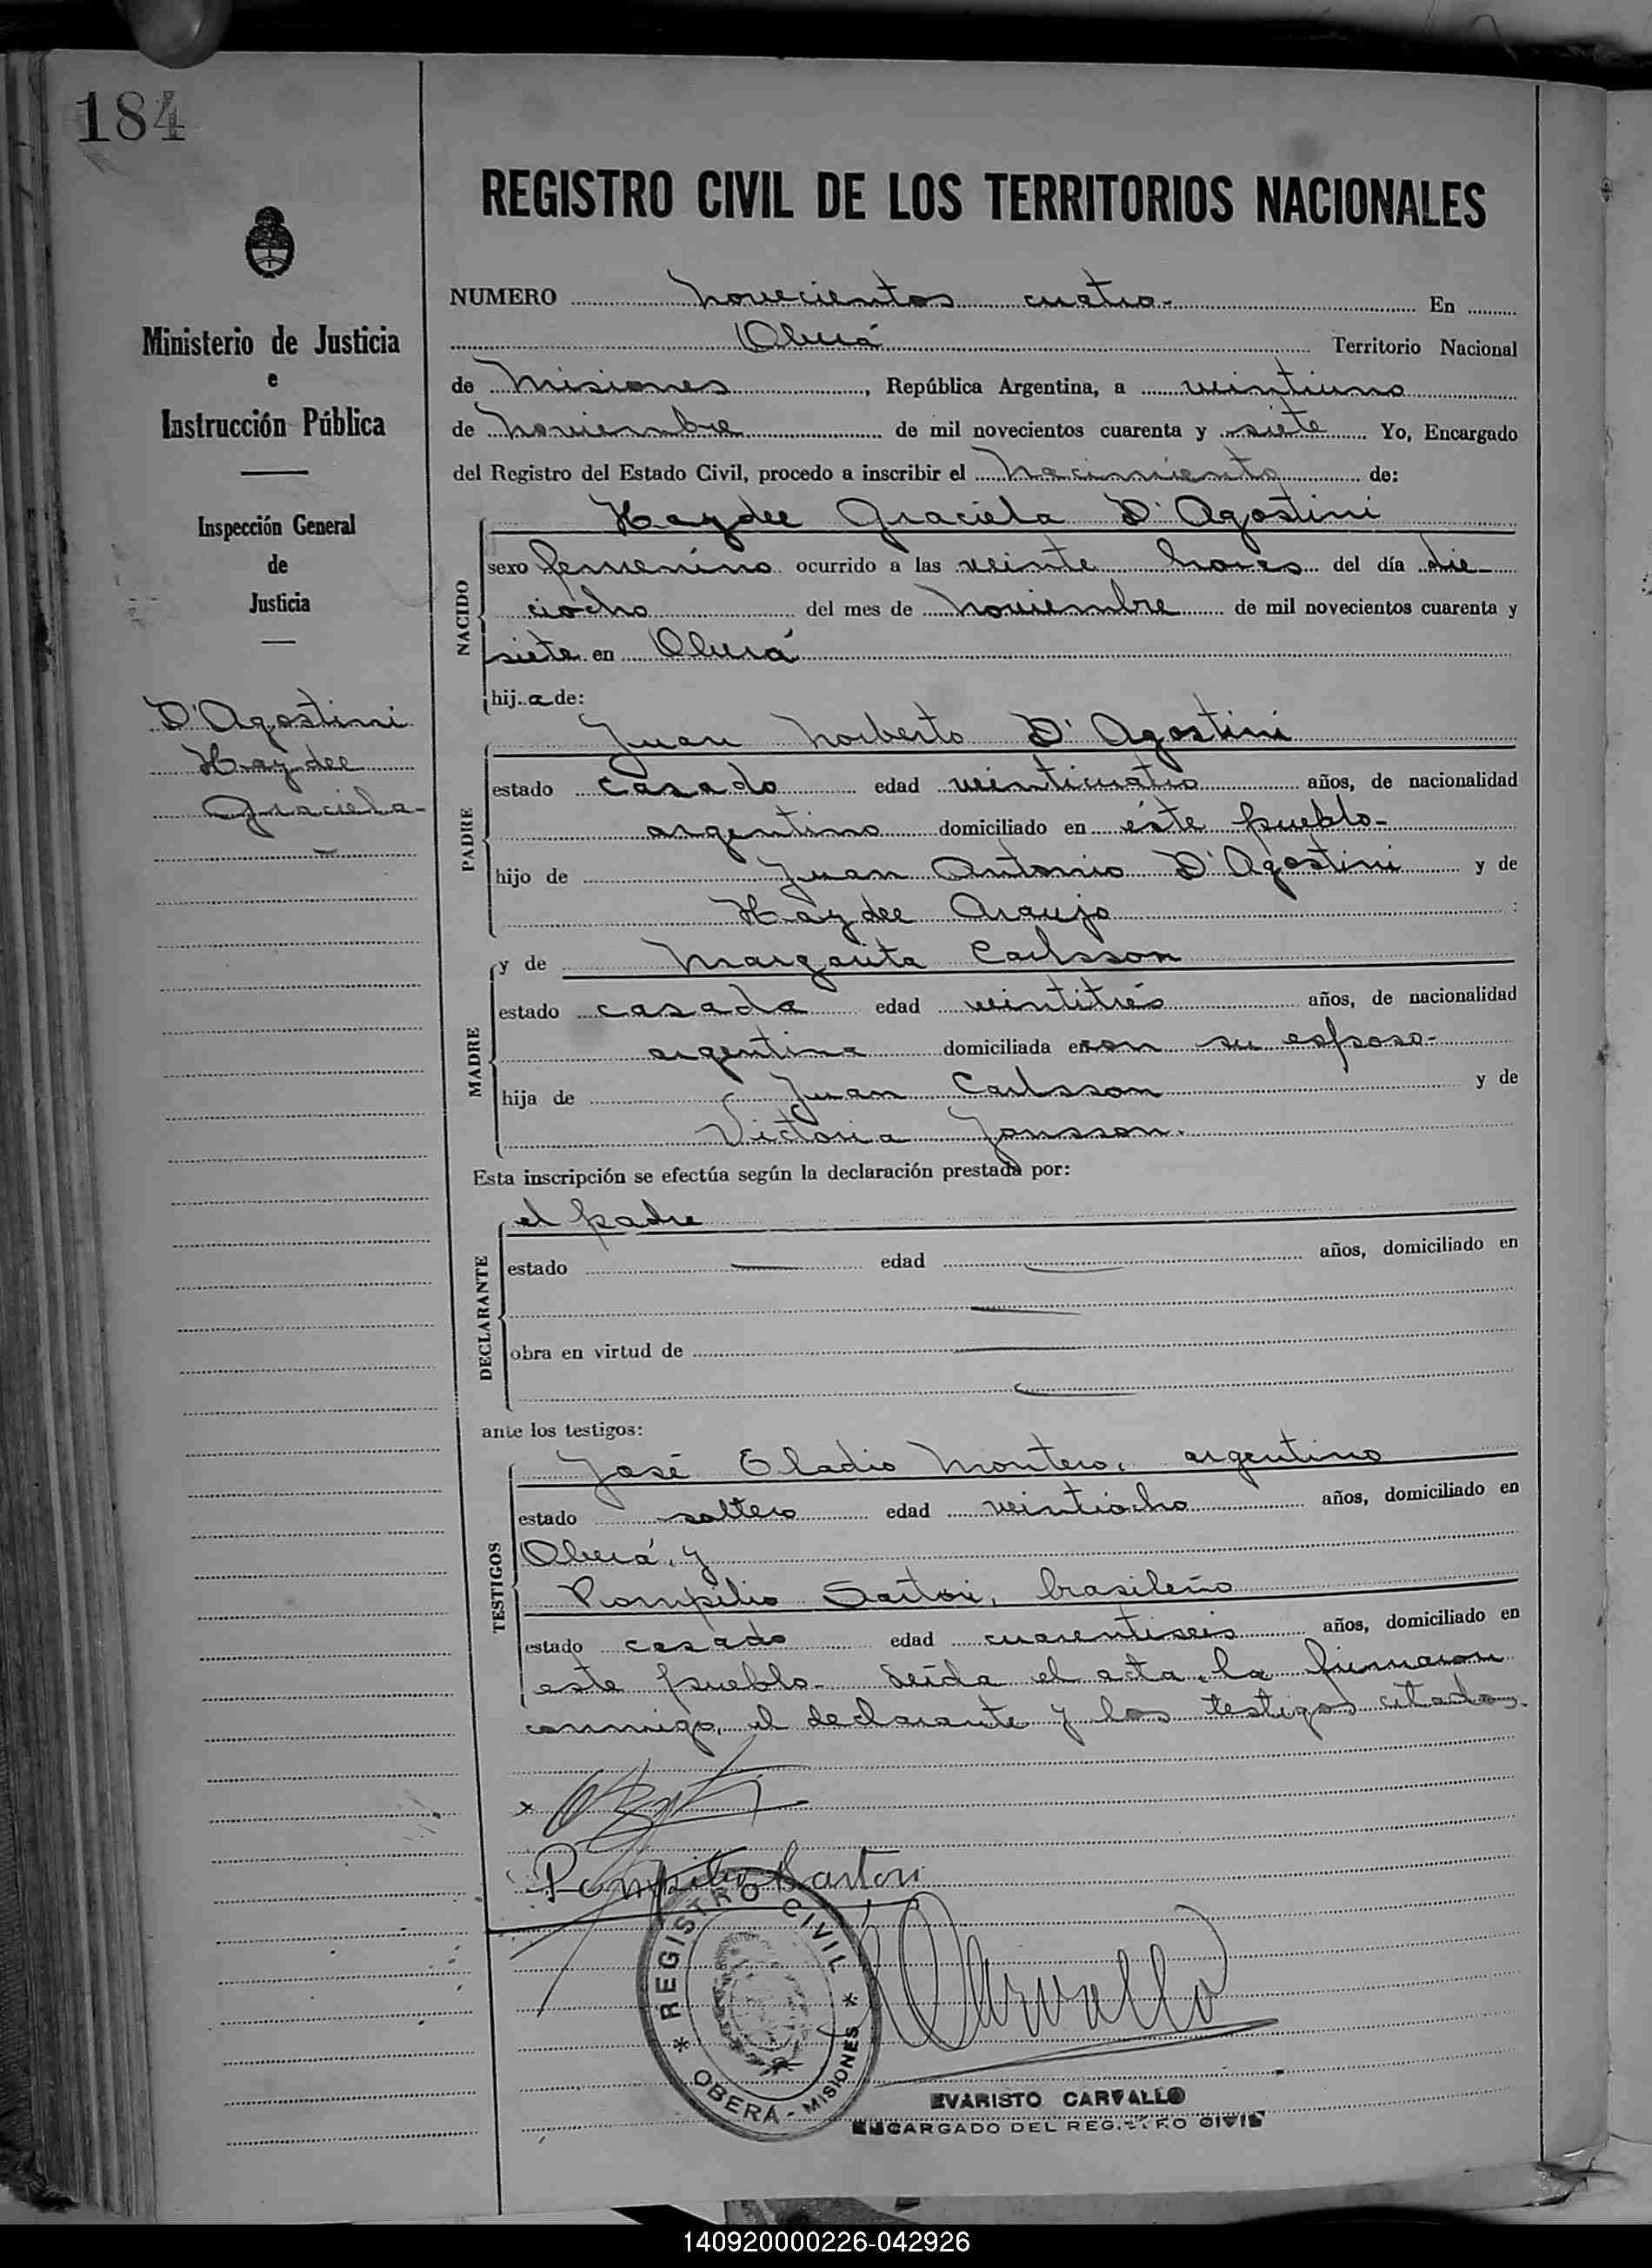 184
REGISTRO CIVIL DE LOS TERRITORIOS NACIONALES
Ministerio de Justicia
e
Instrucción Pública
Inspección General
de
Justicia
D'Agostini
Haydee
Graciela-
NUMERO novecientos cuatro- En
Oberá Territorio Nacional
de Misiones, República Argentina, a veintiuno
de noviembre de mil novecientos cuarenta y siete Yo, Encargado
del Registro del Estado Civil, procedo a inscribir el nacimiento de:
NACIDO
Haydee Graciela D'Agostini
sexo femenino ocurrido a las veinte horas del día die
ciocho del mes de noviembre de mil novecientos cuarenta y
siete en Oberá
hij a de:
PADRE
Juan Norberto D'Agostini
estado casado edad veinticuatro años, de nacionalidad
argentino domiciliado en éste pueblo-
hijo de Juan Antonio D'Agostini y de
Haydee Araujo
MADRE
y de Margarita Carlsson
estado casada edad veintitrés años, de nacionalidad
argentina domiciliada en con su esposo-
hija de Juan Carlsson y de
Victoria Jonsson.
Esta inscripción se efectúa según la declaración prestada por:
DECLARANTE
el padre
estado edad años, domiciliado en
obra en virtud de
ante los testigos:
TESTIGOS
José Eladio Montero, argentino
estado soltero edad veintiocho años, domiciliado en
Oberá, y
Pompilio Sartori, brasileño
estado casado edad cuarentiseis años, domiciliado en
este pueblo- Leída el acta, la firmaron
conmigo, el declarante y los testigos citados.
x
Pompilio Sartori
REGISTRO CIVIL
OBERÁ - MISIONES
Carvallo
EVARISTO CARVALLO
ENCARGADO DEL REGISTRO CIVIL
140920000226-042926